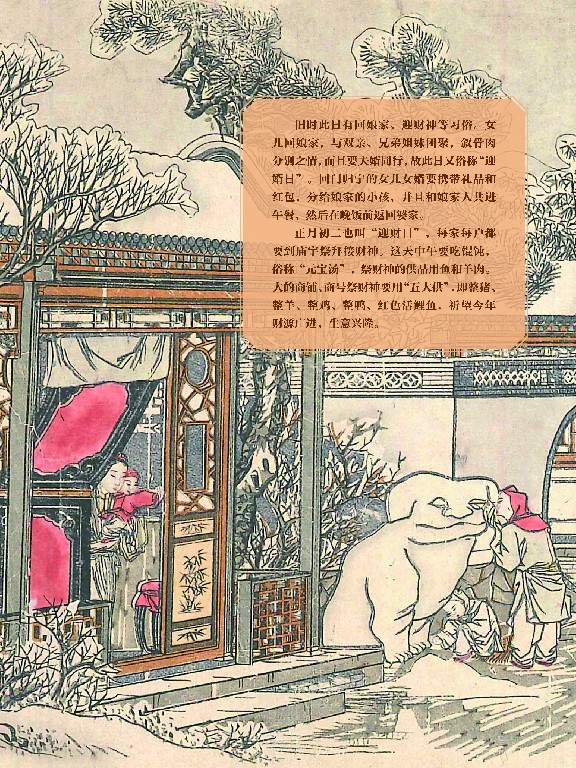 旧时此日有回娘家、迎财神等习俗。女
儿回娘家，与双亲、兄弟姐妹团聚，叙骨肉
分别之情，而且要夫婿同行，故此日又俗称“迎
婿日”。回门归宁的女儿女婿要携带礼品和
红包，分给娘家的小孩，并且和娘家人共进
午餐，然后在晚饭前返回婆家。
正月初二也叫“迎财日”，每家每户都
要到庙宇祭拜接财神。这天中午要吃馄饨，
俗称“元宝汤”，祭财神的供品用鱼和羊肉。
大的商铺、商号祭财神要用“五大供”，即整猪、
整羊、整鸡、整鸭、红色活鲤鱼，祈望今年
财源广进，生意兴隆。